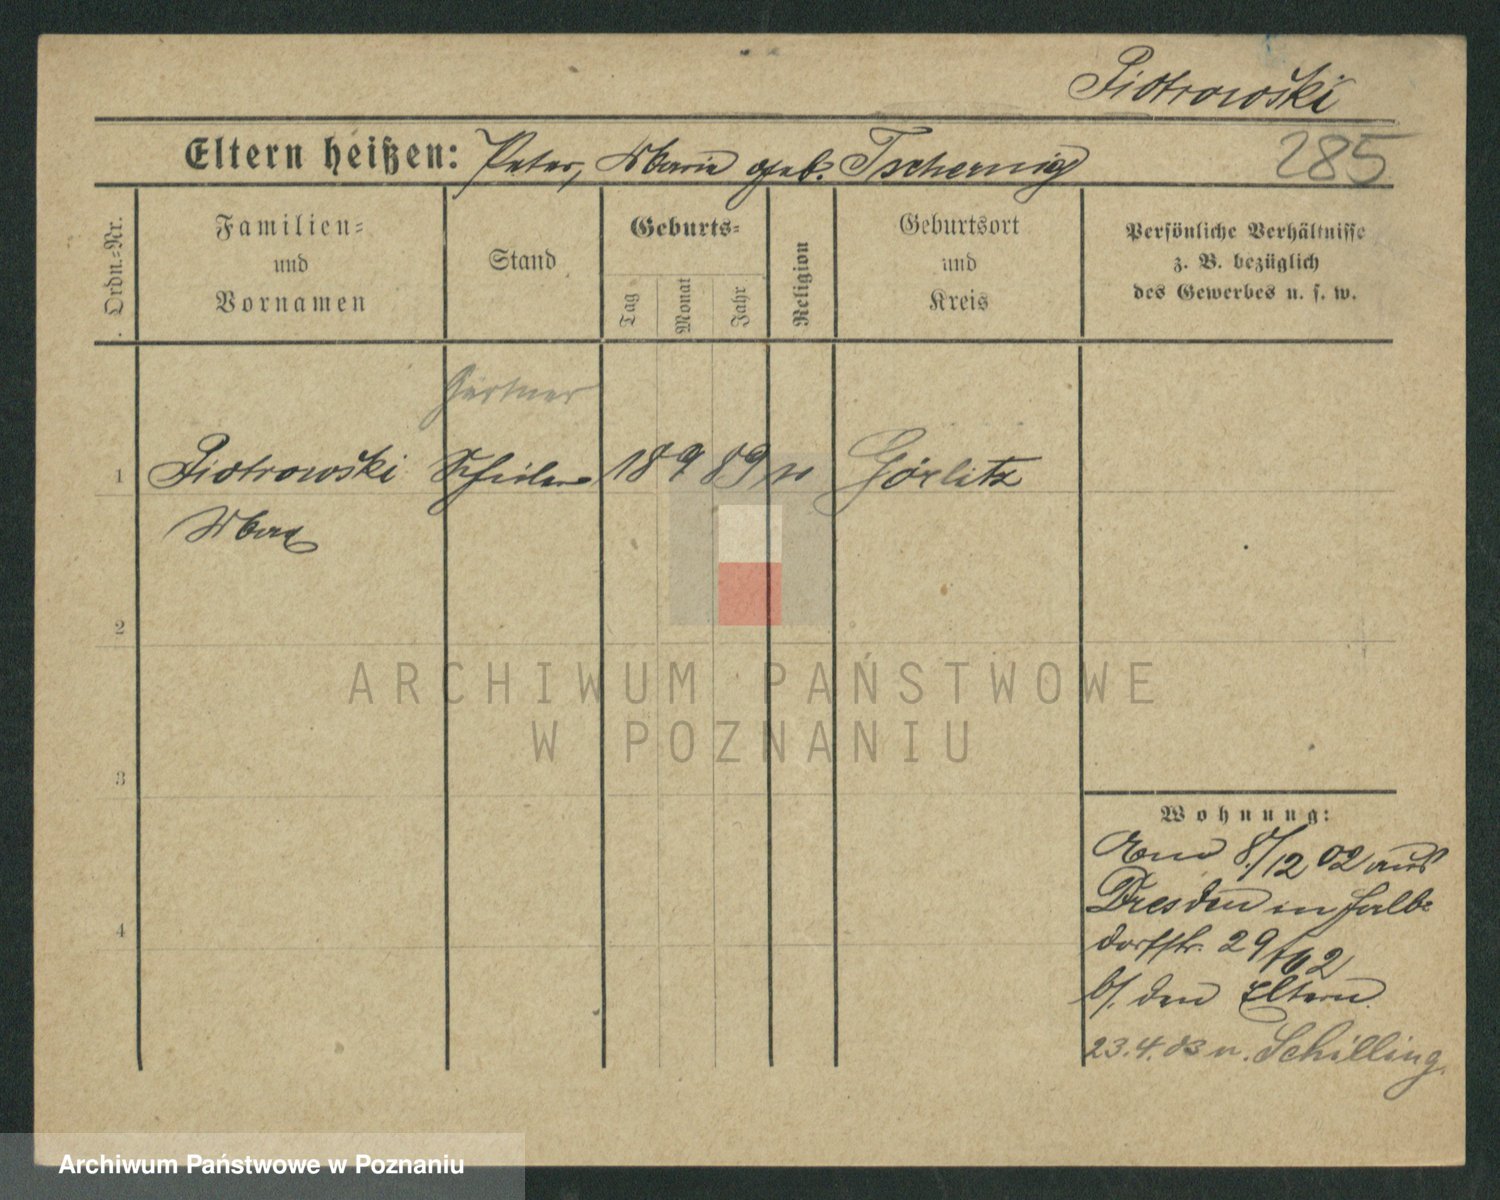 Piotrowski
Eltern heißen: Peter, Marie geb. Tschernig
285
Ordn.-Nr.
Familien-
und
Vornamen
Stand
Geburts-
Tag
Monat
Jahr
Religion
Geburtsort
und
Kreis
Persönliche Verhältnisse
z. B. bezüglich
des Gewerbes u. s. w.
Gärtner
1 Piotrowski Schüler 18 9 89 Görlitz
Max
2
3
4
ARCHIWUM PAŃSTWOWE
W POZNANIU
Wohnung:
8/12 02 aus
Dresden in Halb-
dorfstr. 29
b/. den Eltern.
23.4.03 n. Schilling
Archiwum Państwowe w Poznaniu